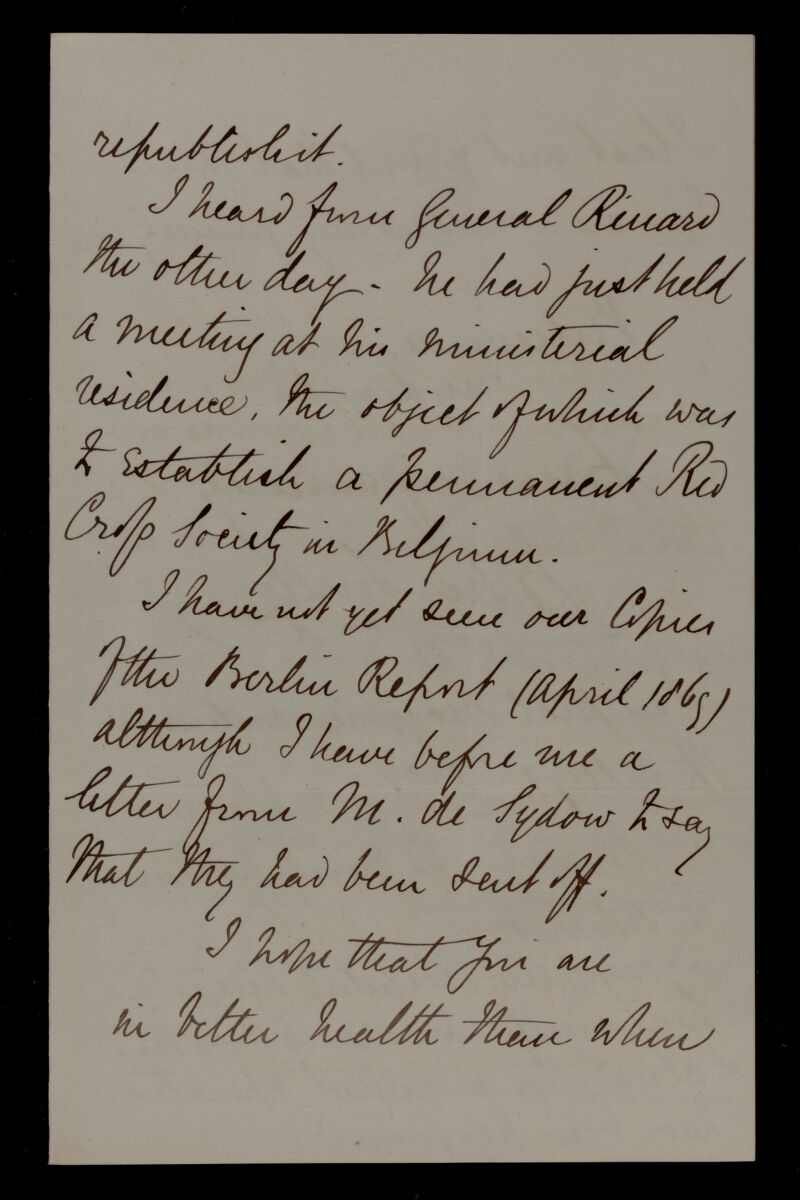 republish it.
I heard from General Renard
the other day - he had just held
a meeting at his ministerial
residence, the object of which was
to establish a permanent Red
Cross Society in Belgium.
I have not yet seen our Copies
of the Berlin Report (April 1869)
although I have before me a
letter from M. de Sydow to say
that they had been sent off.
I hope that you are
in better health than when